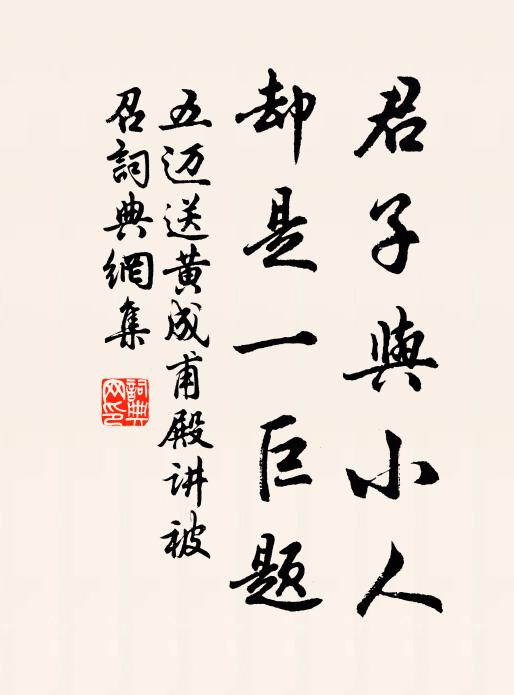 君子與小人
却是一巨题
五迈送黄成甫殿讲被
召詞典網集
詞典
网印